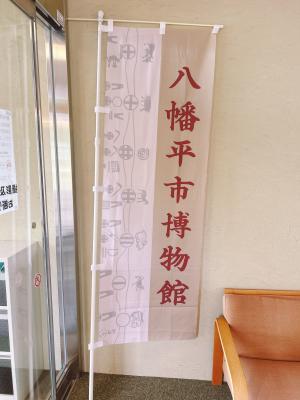 八幡平市博物館